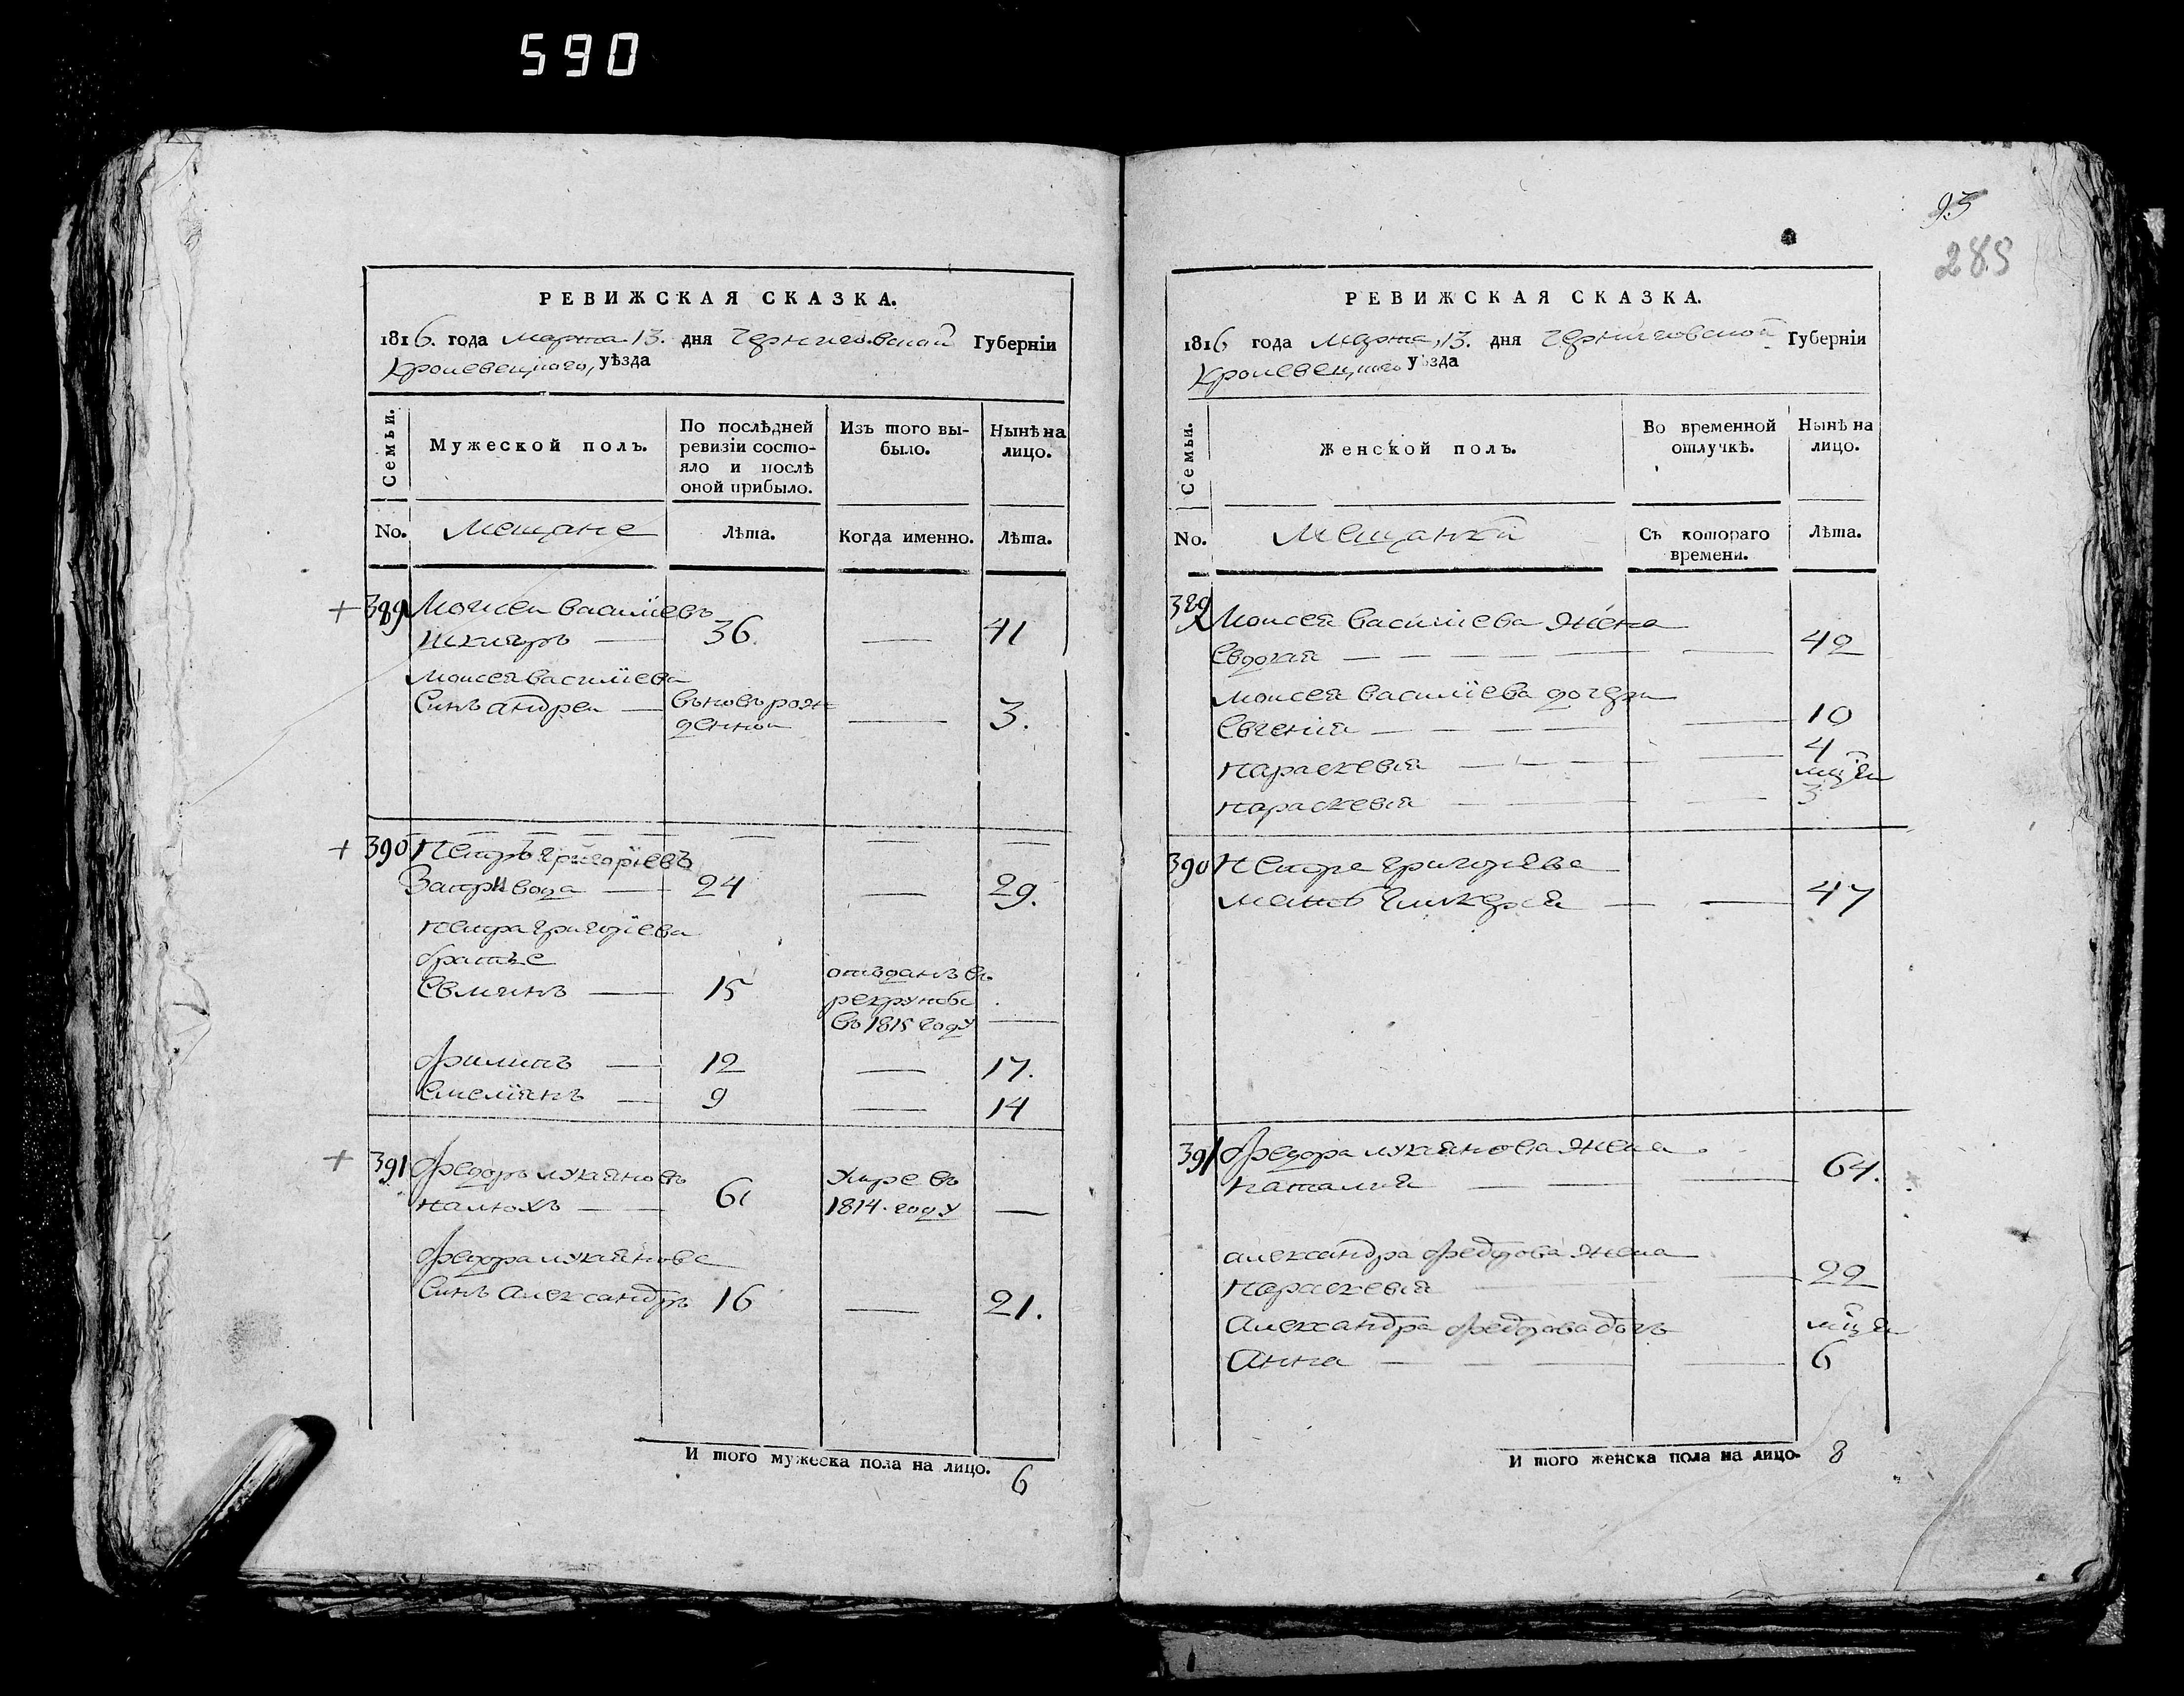 590
РЕВИЖСКАЯ СКАЗКА.
1816. года марта 13. дня Черниговской Губерніи
Кролевецкого, уѣзда
Семьи.
Мужеской полъ.
По послѣдней ревизіи состояло и послѣ оной прибыло.
Изъ того выбыло.
Нынѣ на лицо.
No.
Мещане
Лѣта.
Когда именно.
Лѣта.
+ 389 Моисей Василіевъ
Шкляръ — 36. — 41
Моисея Василіева
Синъ андрей — вьновъ рож
денной — 3.
+ 390 Петръ Григоріевъ
Вод — 24 — 29.
Петра Григоріева
братье
15 отъданъ въ
рекруты
въ 1815 году —
Филипъ — 12 — 17.
Емеліянъ — 9 — 14
+ 391 Федоръ лукяновъ
61 Умре въ
1814. году —
Федора лукянова
Синъ Александръ 16 — 21.
И того мужеска пола на лицо. 6
93
289
РЕВИЖСКАЯ СКАЗКА.
1816 года Марта, 13. дня Черниговской Губерніи
Кролевецкого уѣзда
Семьи.
Женской полъ.
Во временной отлучкѣ.
Нынѣ на лицо.
No.
Мещанки
Съ котораго времени.
Лѣта.
389 Моисея Василіева Жена
Евдокія — 42
Моисея Василіева дочери
Евгенія — 10
Параскевія — 4
Параскевія — мцей 3
390 Петра Григоріева
мать Гликерія — 47
391 Федора лукянова жена
Наталия — 64.
александра Федорова Жена
Параскевія — 22
Александра Федорова дочь
Анна — мцей 6
И того женска пола на лицо. 8